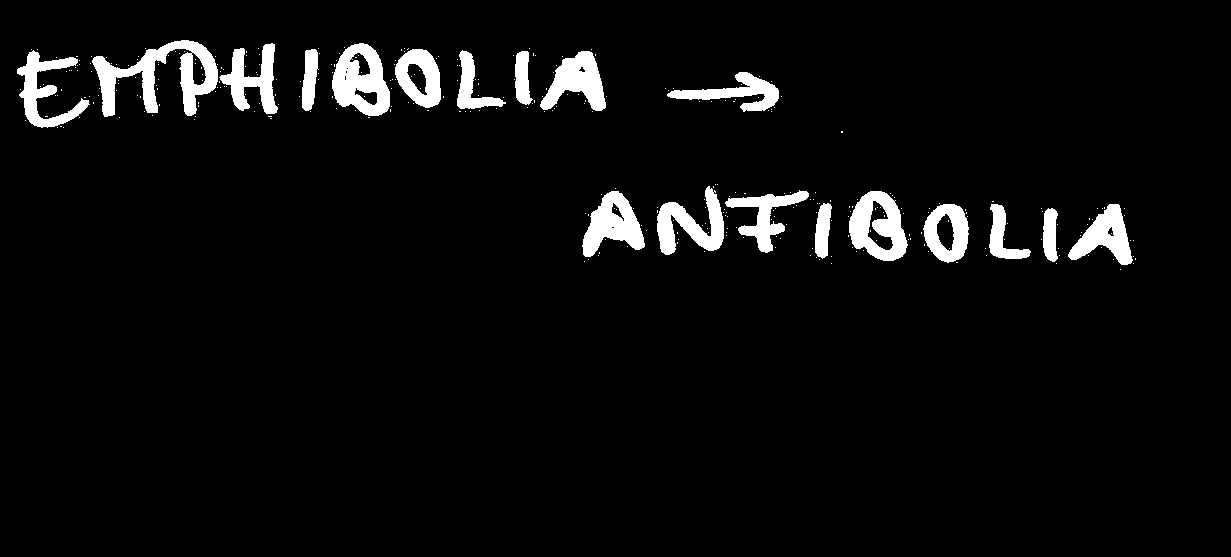 EMPHIBOLIA →
ANFIBOLIA